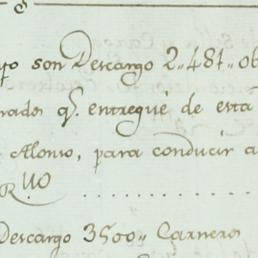 yo son Descargo 2„481„06
rados q.^e entregué de esta
Alonso, para conducir a
R.^llo
Descargo 3500„ Carneros